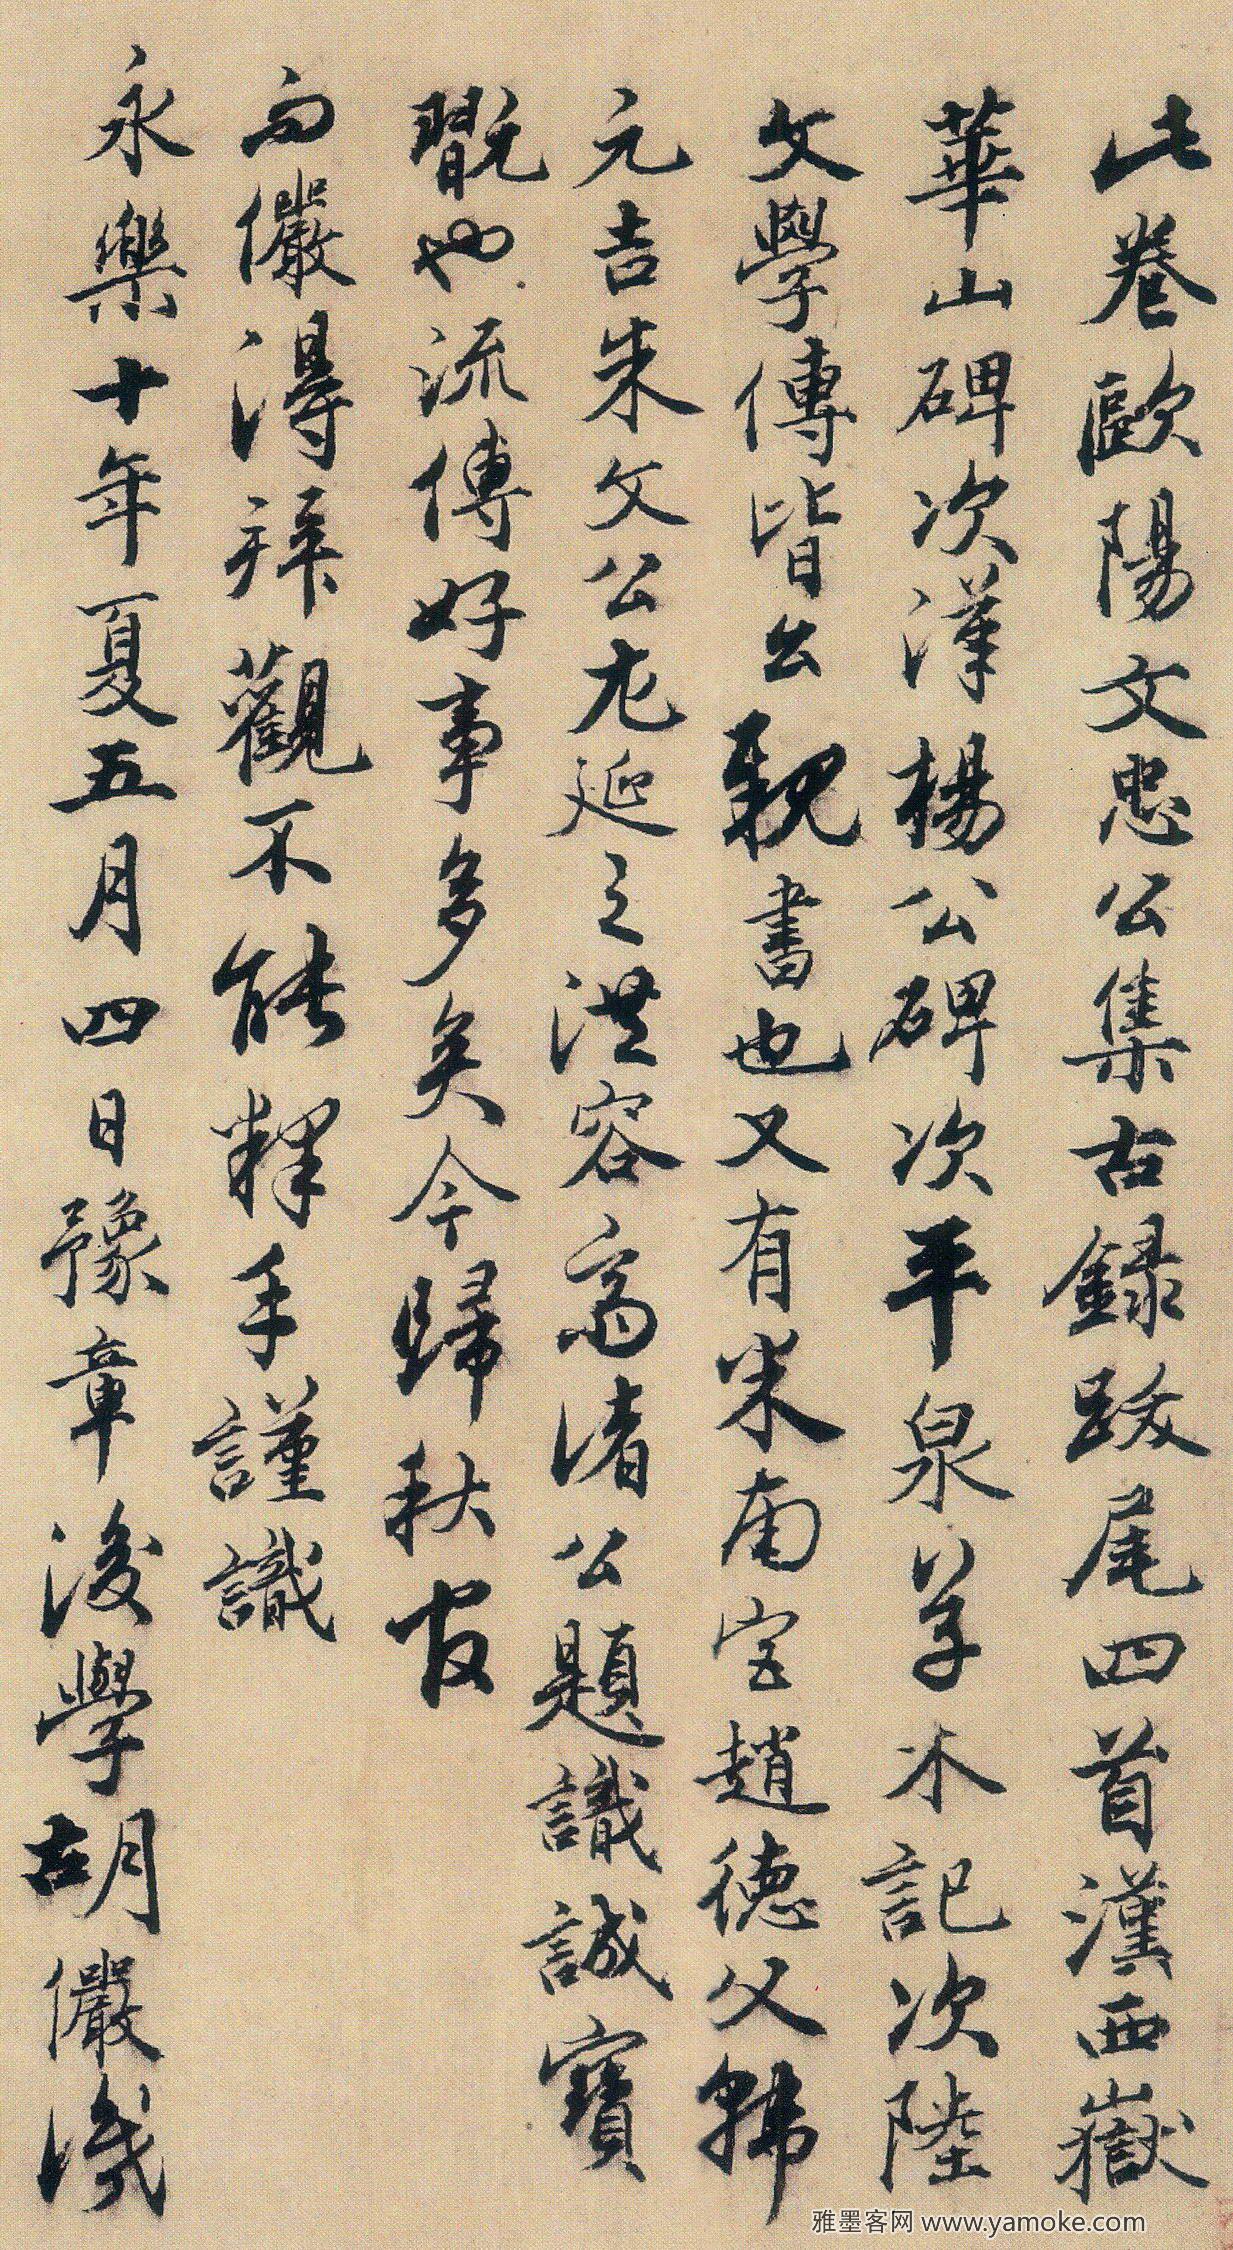 此卷歐陽文忠公集古錄跋尾四首漢西嶽
華山碑次漢楊公碑次平泉草木記次陸
文學傳皆公親書也又有米南宮趙德父韩
元吉朱文公尤延之洪容齋諸公題識誠寶
翫也流傳好事多矣今歸秋官
而儼得拜觀不能釋手謹識
永樂十年夏五月四日豫章後學胡儼識
雅墨客网 www.yamoke.com